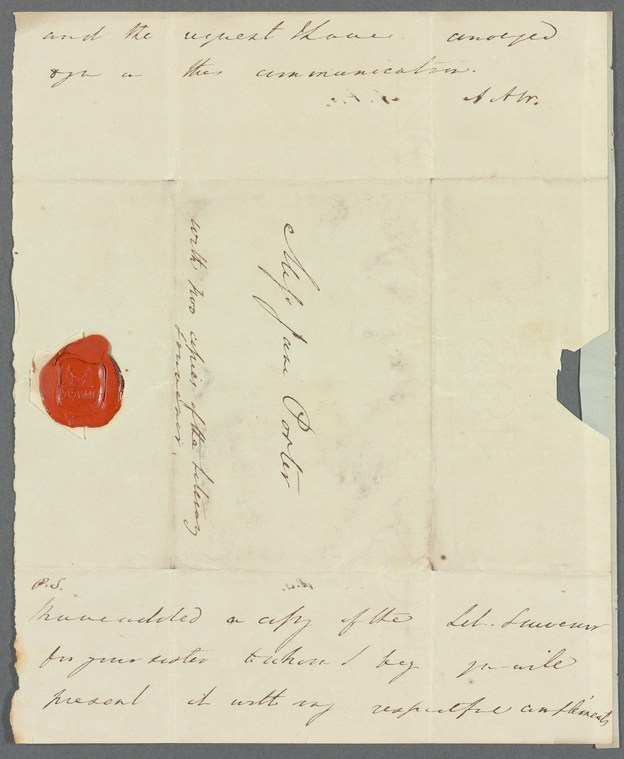 and the request I have conveyed
to you in this communication.
A A W.
Miss Jane Porter
with two copies of the Literary
Souvenir.
P.S.
I have added a copy of the Lit. Souvenir
for your sister to whom I beg you will
present it with my respectful compliments